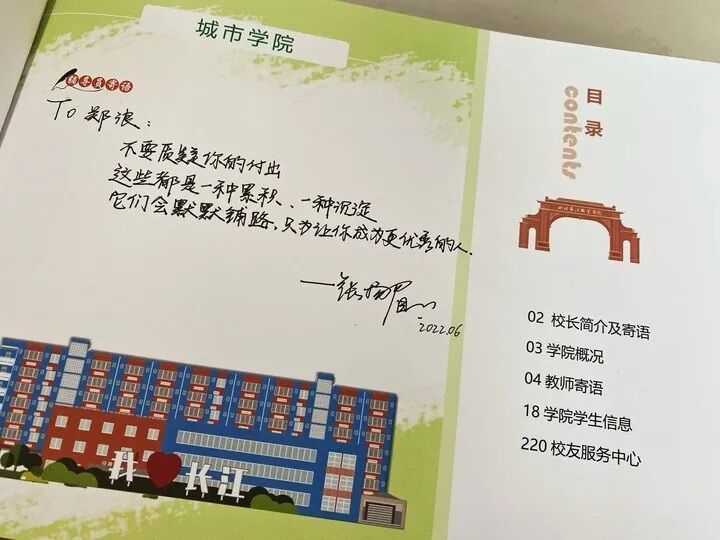 城市学院
辅导员寄语
To 郑浪：
不要质疑你的付出
这些都是一种累积、一种沉淀
它们会默默铺路，只为让你成为更优秀的人.
2022.06
我 长江
目录
contents
02 校长简介及寄语
03 学院概况
04 教师寄语
18 学院学生信息
220 校友服务中心